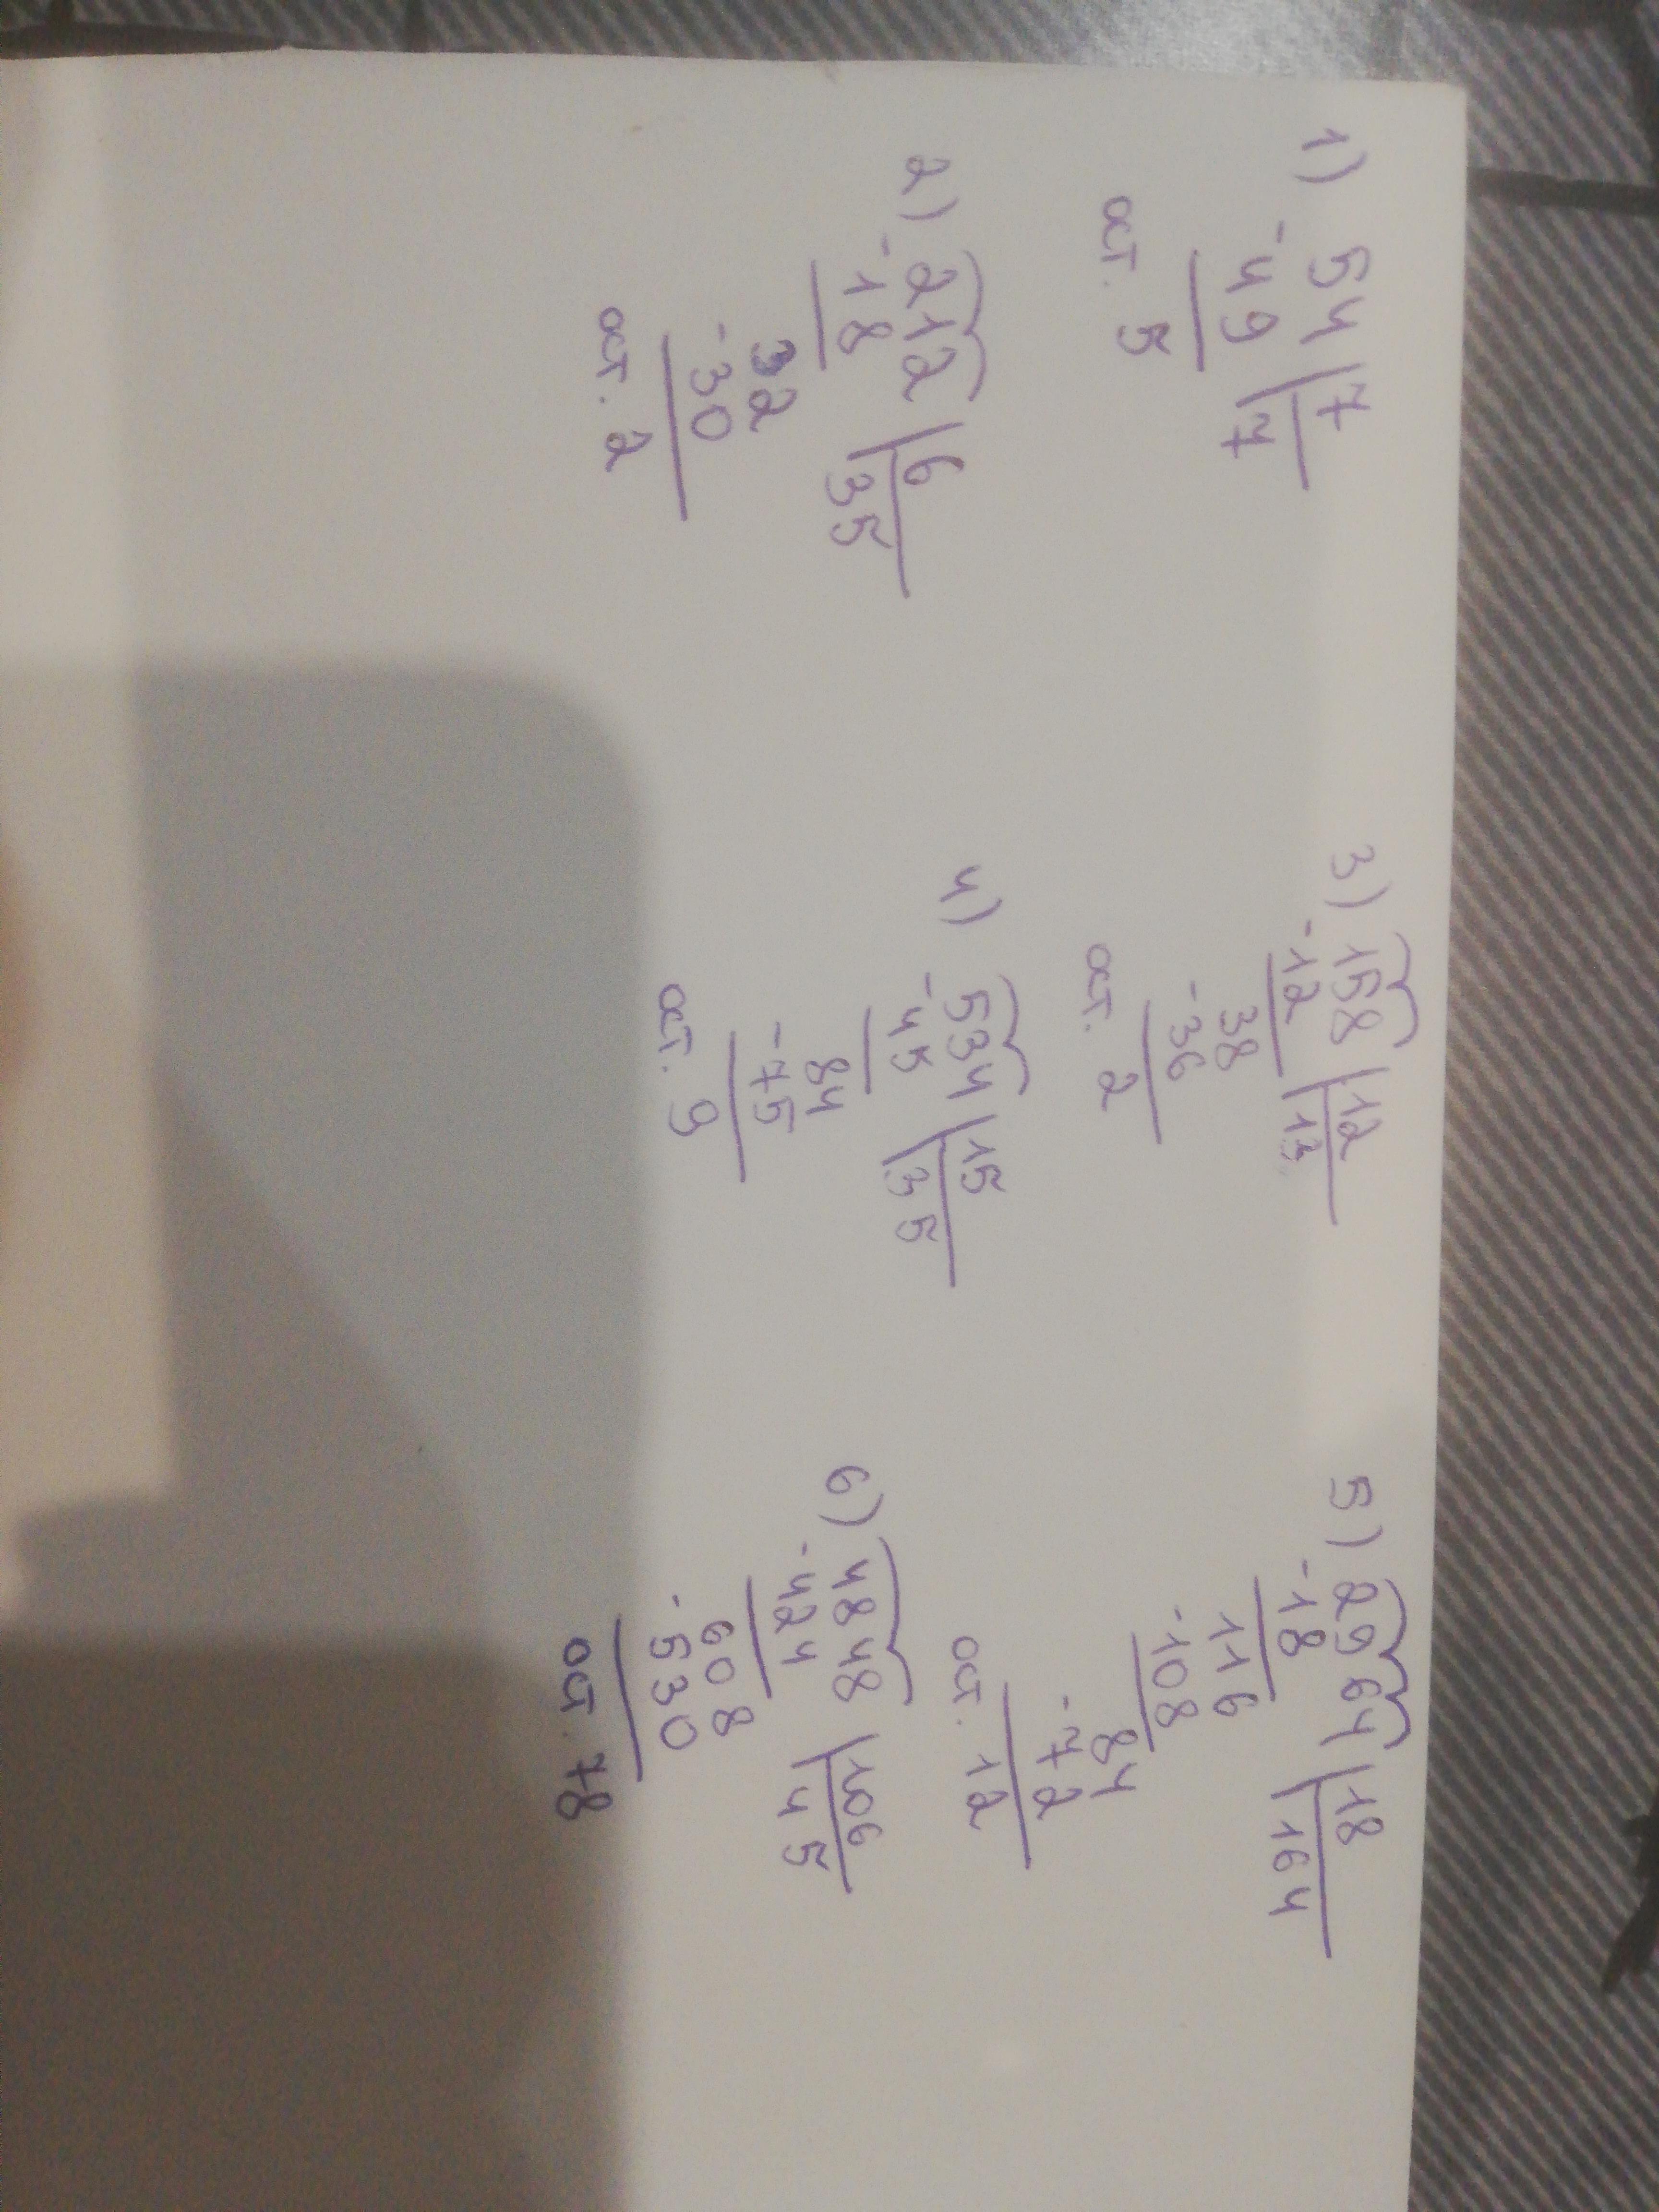 1) 54 | 7
- 49 | 7
ост. 5
2) 212 | 6
- 18 | 35
32
- 30
ост. 2
3) 158 | 12
- 12 | 13
38
- 36
ост. 2
4) 534 | 15
- 45 | 35
84
- 75
ост. 9
5) 2964 | 18
- 18 | 164
116
- 108
84
- 72
ост. 12
6) 4848 | 106
- 424 | 45
608
- 530
ост. 78